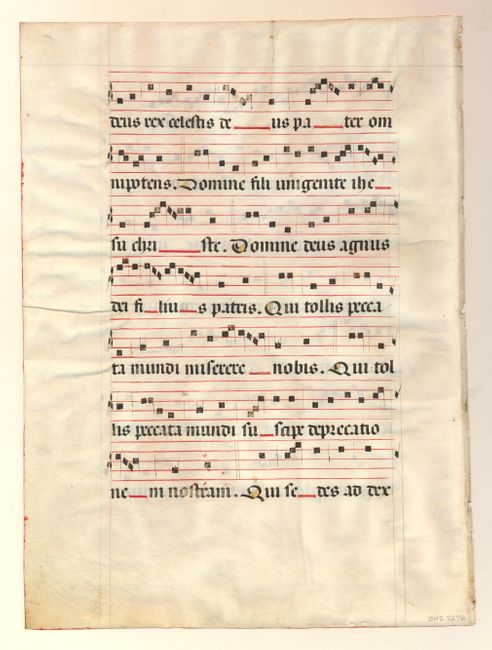 deus rex celestis de us pa ter om
nipotens. Domine fili unigenite ihe
su chri ste. Domine deus agnus
dei fi liu s patris. Qui tollis pecca
ta mundi miserere nobis. Qui tol
lis peccata mundi su scipe deprecatio
ne m nostram. Qui se des ad dex